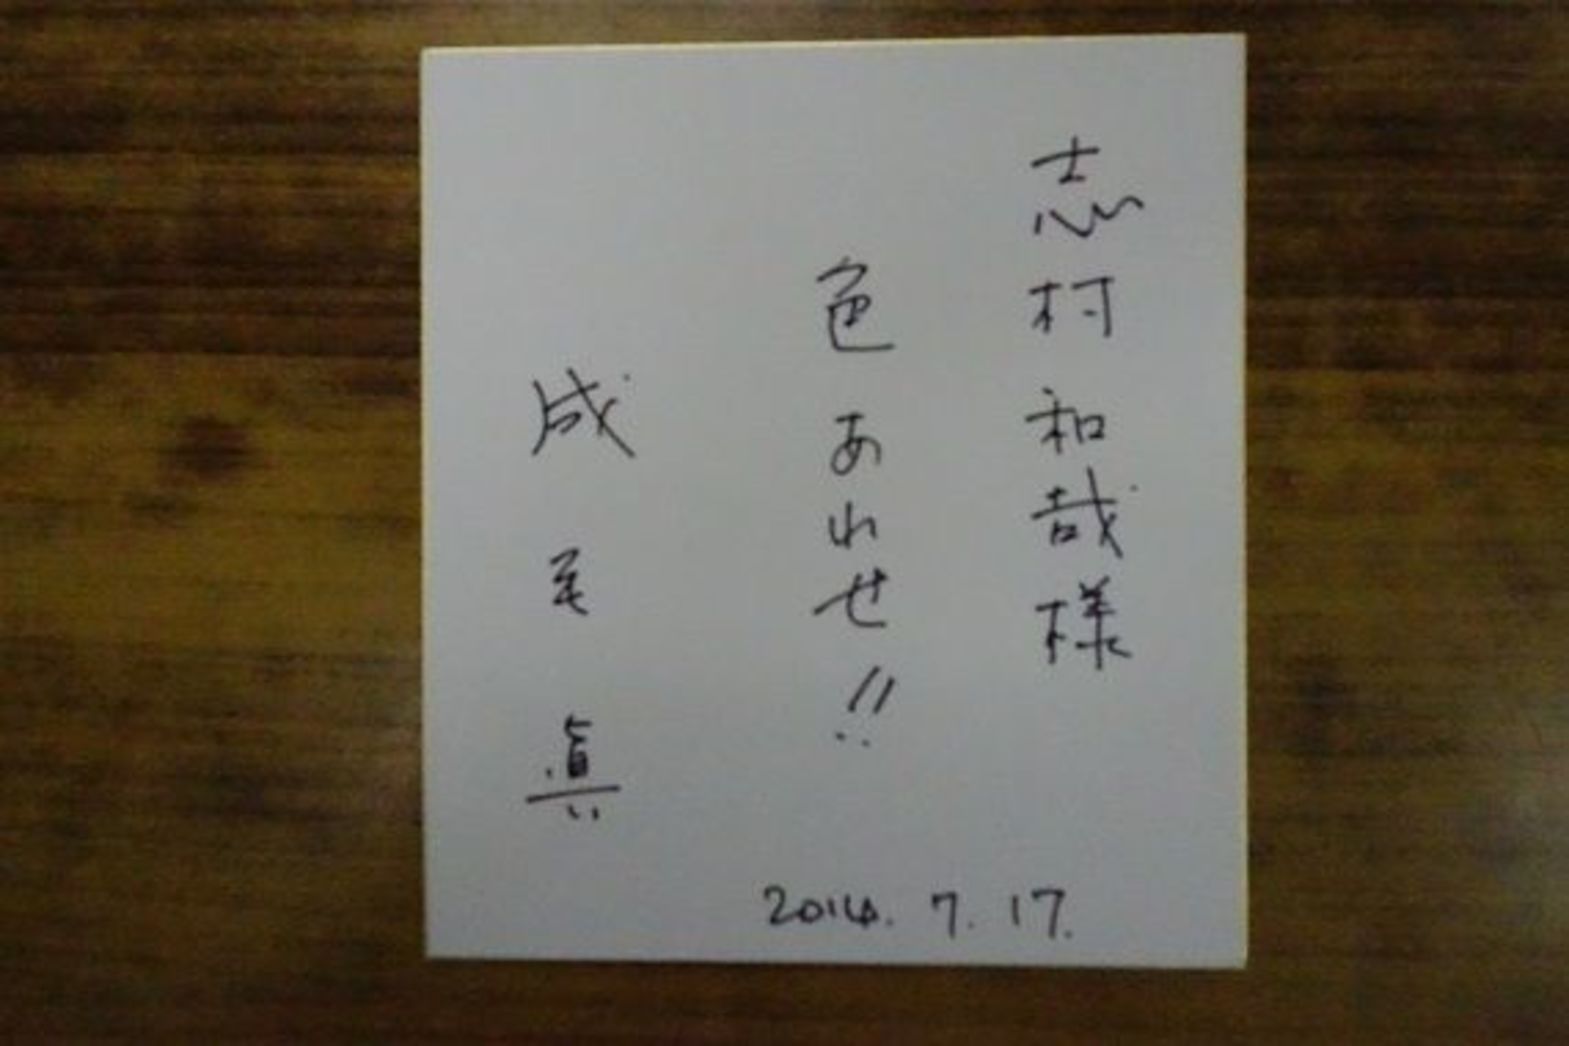 志村和哉様
色あれせ!!
成毛真
2014.7.17.